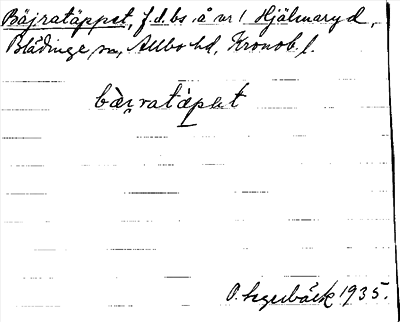 Bäjratäppet, f.d. bs å nr 1 Hjälmaryd,
Blädinge sn, Allbo hd, Kronob. l.
bär̯ratäpet
1935.